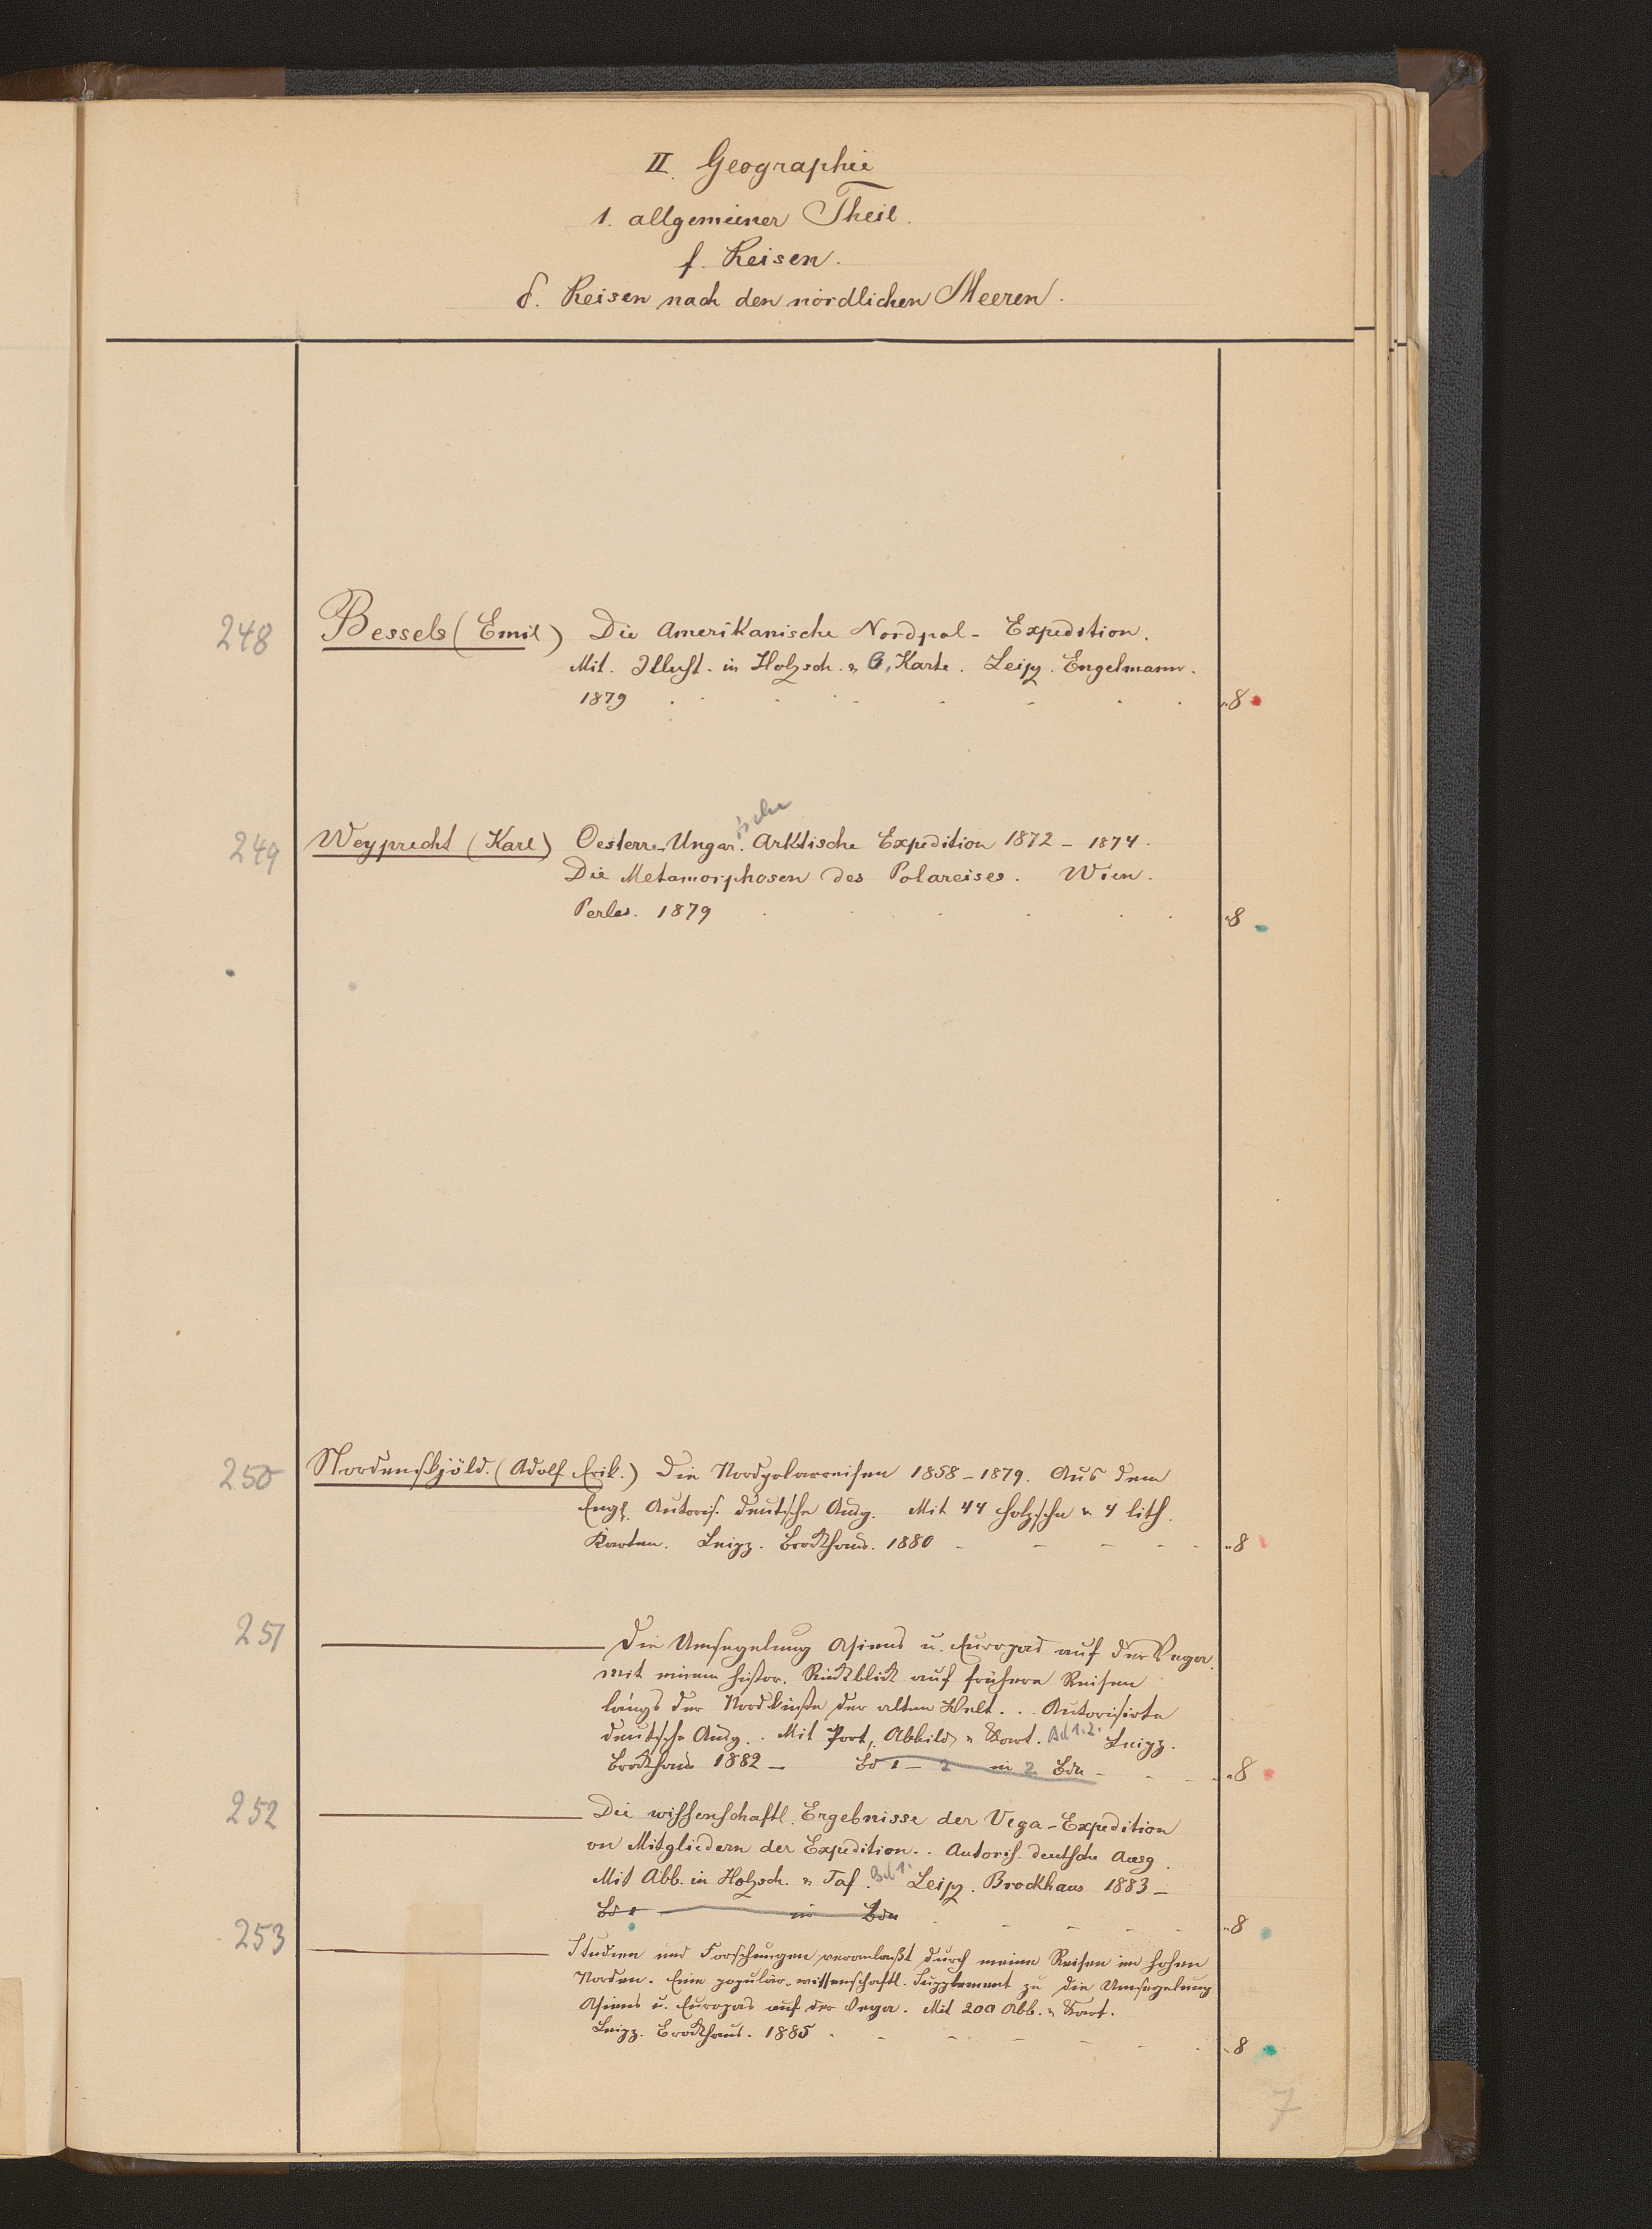 II. Geographie
1. allgemeiner Theil.
f. Reisen.
δ. Reisen nach den nördlichen Meeren.
248 Bessels (Emil) Die Amerikanische Nordpol-Expedition.
Mit. Illust. in Holzsch. u. Karte. Leipz. Engelmann.
1879 8
249 Weyprecht (Karl) Oesterr.-Ungar.ische Arktische Expedition 1872 – 1874.
Die Metamorphosen des Polareises. Wien.
Perles. 1879 8
250 Nordenskjöld. (Adolf Erik.) Die Nordpolarreisen 1858–1879. Aus dem
Engl. Autoris. deutsche Ausg. Mit 44 Holzschn u. 4 lith.
Karten. Leipz. Brockhaus. 1880 8
251 — Die Umsegelung Asiens u. Europas auf der Vega.
Mit einem histor. Rückblick auf frühere Reisen
längs der Nordküste der alten Welt... Autorisirte
deutsche Ausg.. Mit Port, Abbild u. Kart. Bd 1.2. Leipz.
Brockhaus 1882 — Bd 1 – 2 in 2 Bdn 8
252 — Die wissenschaftl. Ergebnisse der Vega-Expedition
on Mitgliedern der Expedition.. Autoris. deutsche Ausg.
Mit Abb. in Holzsch. u. Taf. Bd 1. Leipz. Brockhaus 1883 –
Bd 1 — in Bdn 8
253 — Studien und Forschungen veranlaßt durch meine Reisen im hohen
Norden. Eine populär-wissenschaftl. Supplement zu die Umsegelung
Asiens u. Europas auf der Vega. Mit 200 Abb. u. Kart.
Leipz. Brockhaus. 1885 8
7